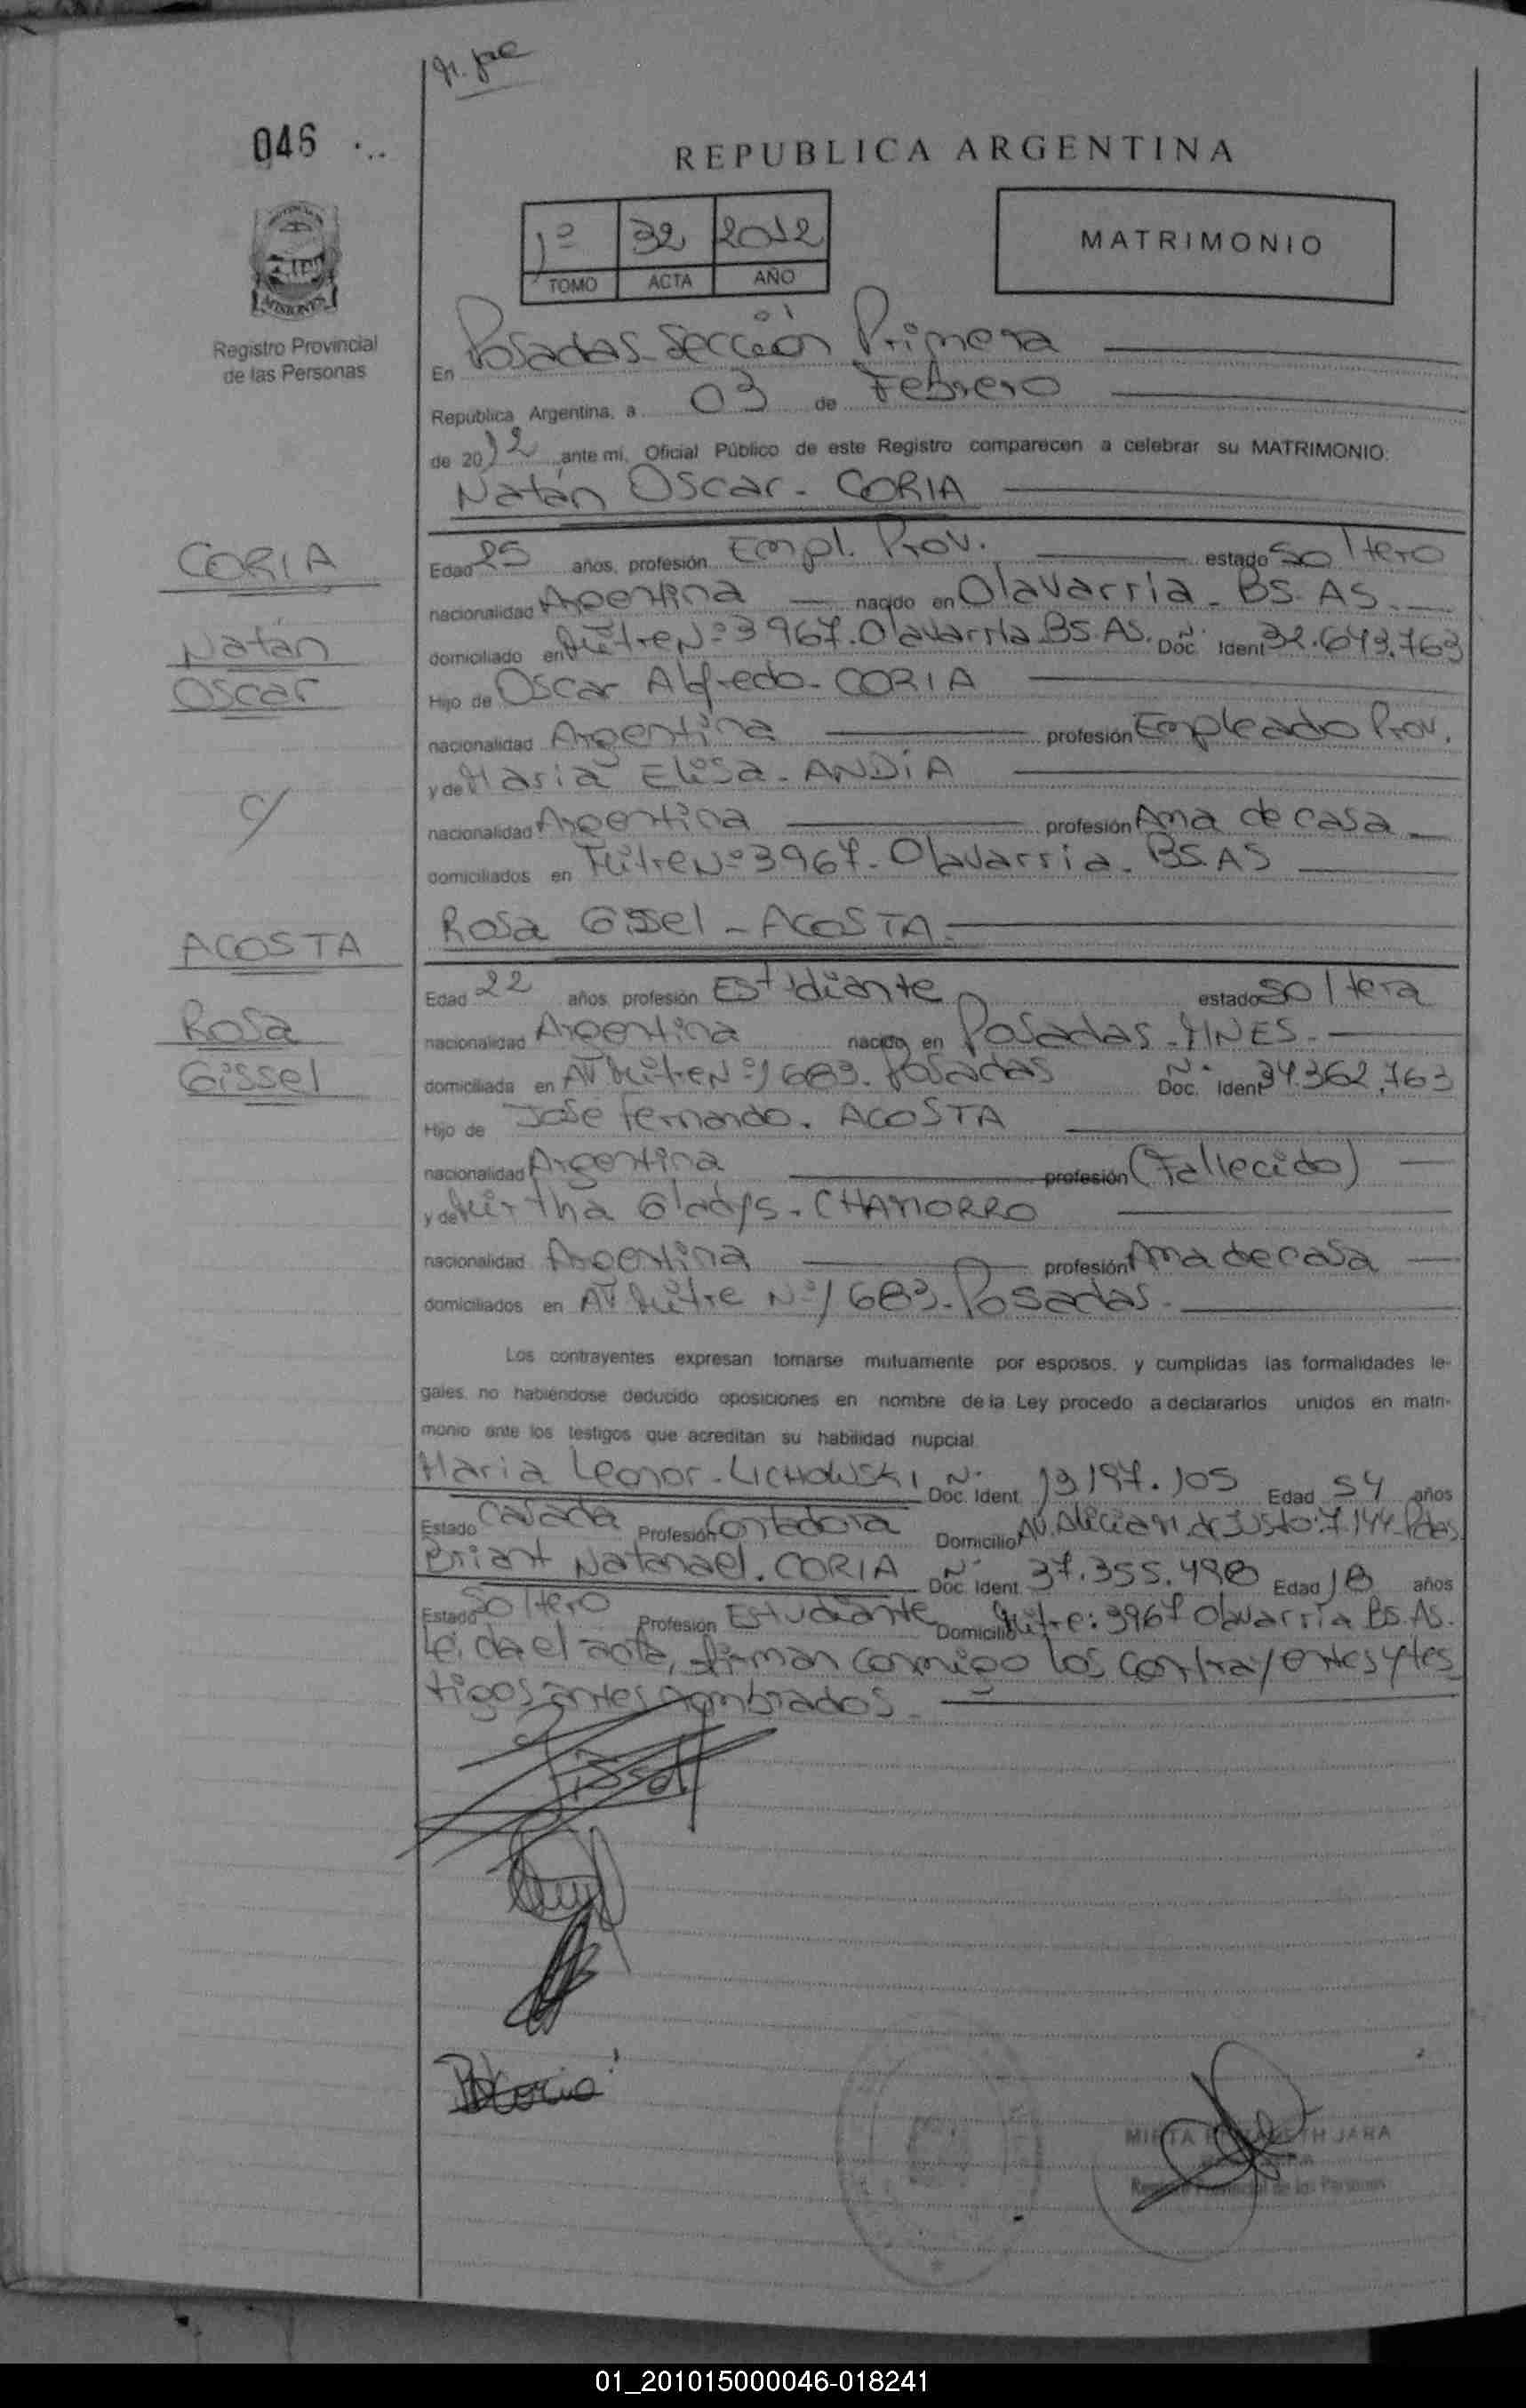 046
REPUBLICA ARGENTINA
1º 32 2012
TOMO ACTA AÑO
MATRIMONIO
MISIONES
Registro Provincial
de las Personas
En Posadas Sección Primera
Republica Argentina, a 03 de Febrero
de 2012 ante mi, Oficial Público de este Registro comparecen a celebrar su MATRIMONIO:
Natán Oscar - CORIA
CORIA
Natán
Oscar
c/
ACOSTA
Rosa
Gissel
Edad 25 años, profesión Empl. Prov. estado Soltero
nacionalidad Argentina nacido en Olavarría - BS. AS.
domiciliado en Mitre Nº 3967. Olavarría BS. AS. Doc. Nº Ident 32.643.763
Hijo de Oscar Alfredo - CORIA
nacionalidad Argentina profesión Empleado Prov.
y de María Elisa - ANDÍA
nacionalidad Argentina profesión Ama de casa
domiciliados en Mitre Nº 3967 - Olavarría - BS. AS
Rosa Gissel - ACOSTA
Edad 22 años profesión Estudiante estado Soltera
nacionalidad Argentina nacido en Posadas - MNES.
domiciliada en AV Mitre Nº 1683. Posadas Doc. Nº Ident 34.362.763
Hijo de José Fernando. ACOSTA
nacionalidad Argentina profesión (Fallecido)
y de Mirtha Gladys - CHAMORRO
nacionalidad Argentina profesión Ama de casa
domiciliados en AV Mitre Nº 1683 - Posadas -
Los contrayentes expresan tomarse mutuamente por esposos, y cumplidas las formalidades le-
gales, no habiéndose deducido oposiciones en nombre de la Ley procedo a declararlos unidos en matri-
monio ante los testigos que acreditan su habilidad nupcial
María Leonor - LICHOWSKI Doc. Nº Ident. 13.197.105 Edad 54 años
Estado Casada Profesión Contadora Domicilio AV. Alicia M. de Justo: 7.144 - Pdas.
Briant Natanael. CORIA Doc. Nº Ident. 37.355.498 Edad 18 años
Estado Soltero Profesión Estudiante Domicilio Mitre: 3967 Olavarría BS. AS.
Leída el acta, firman conmigo los contrayentes y tes
tigos antes nombrados.
Gissel
B Coria
JARA
Registro Provincial de las Personas
01_201015000046-018241